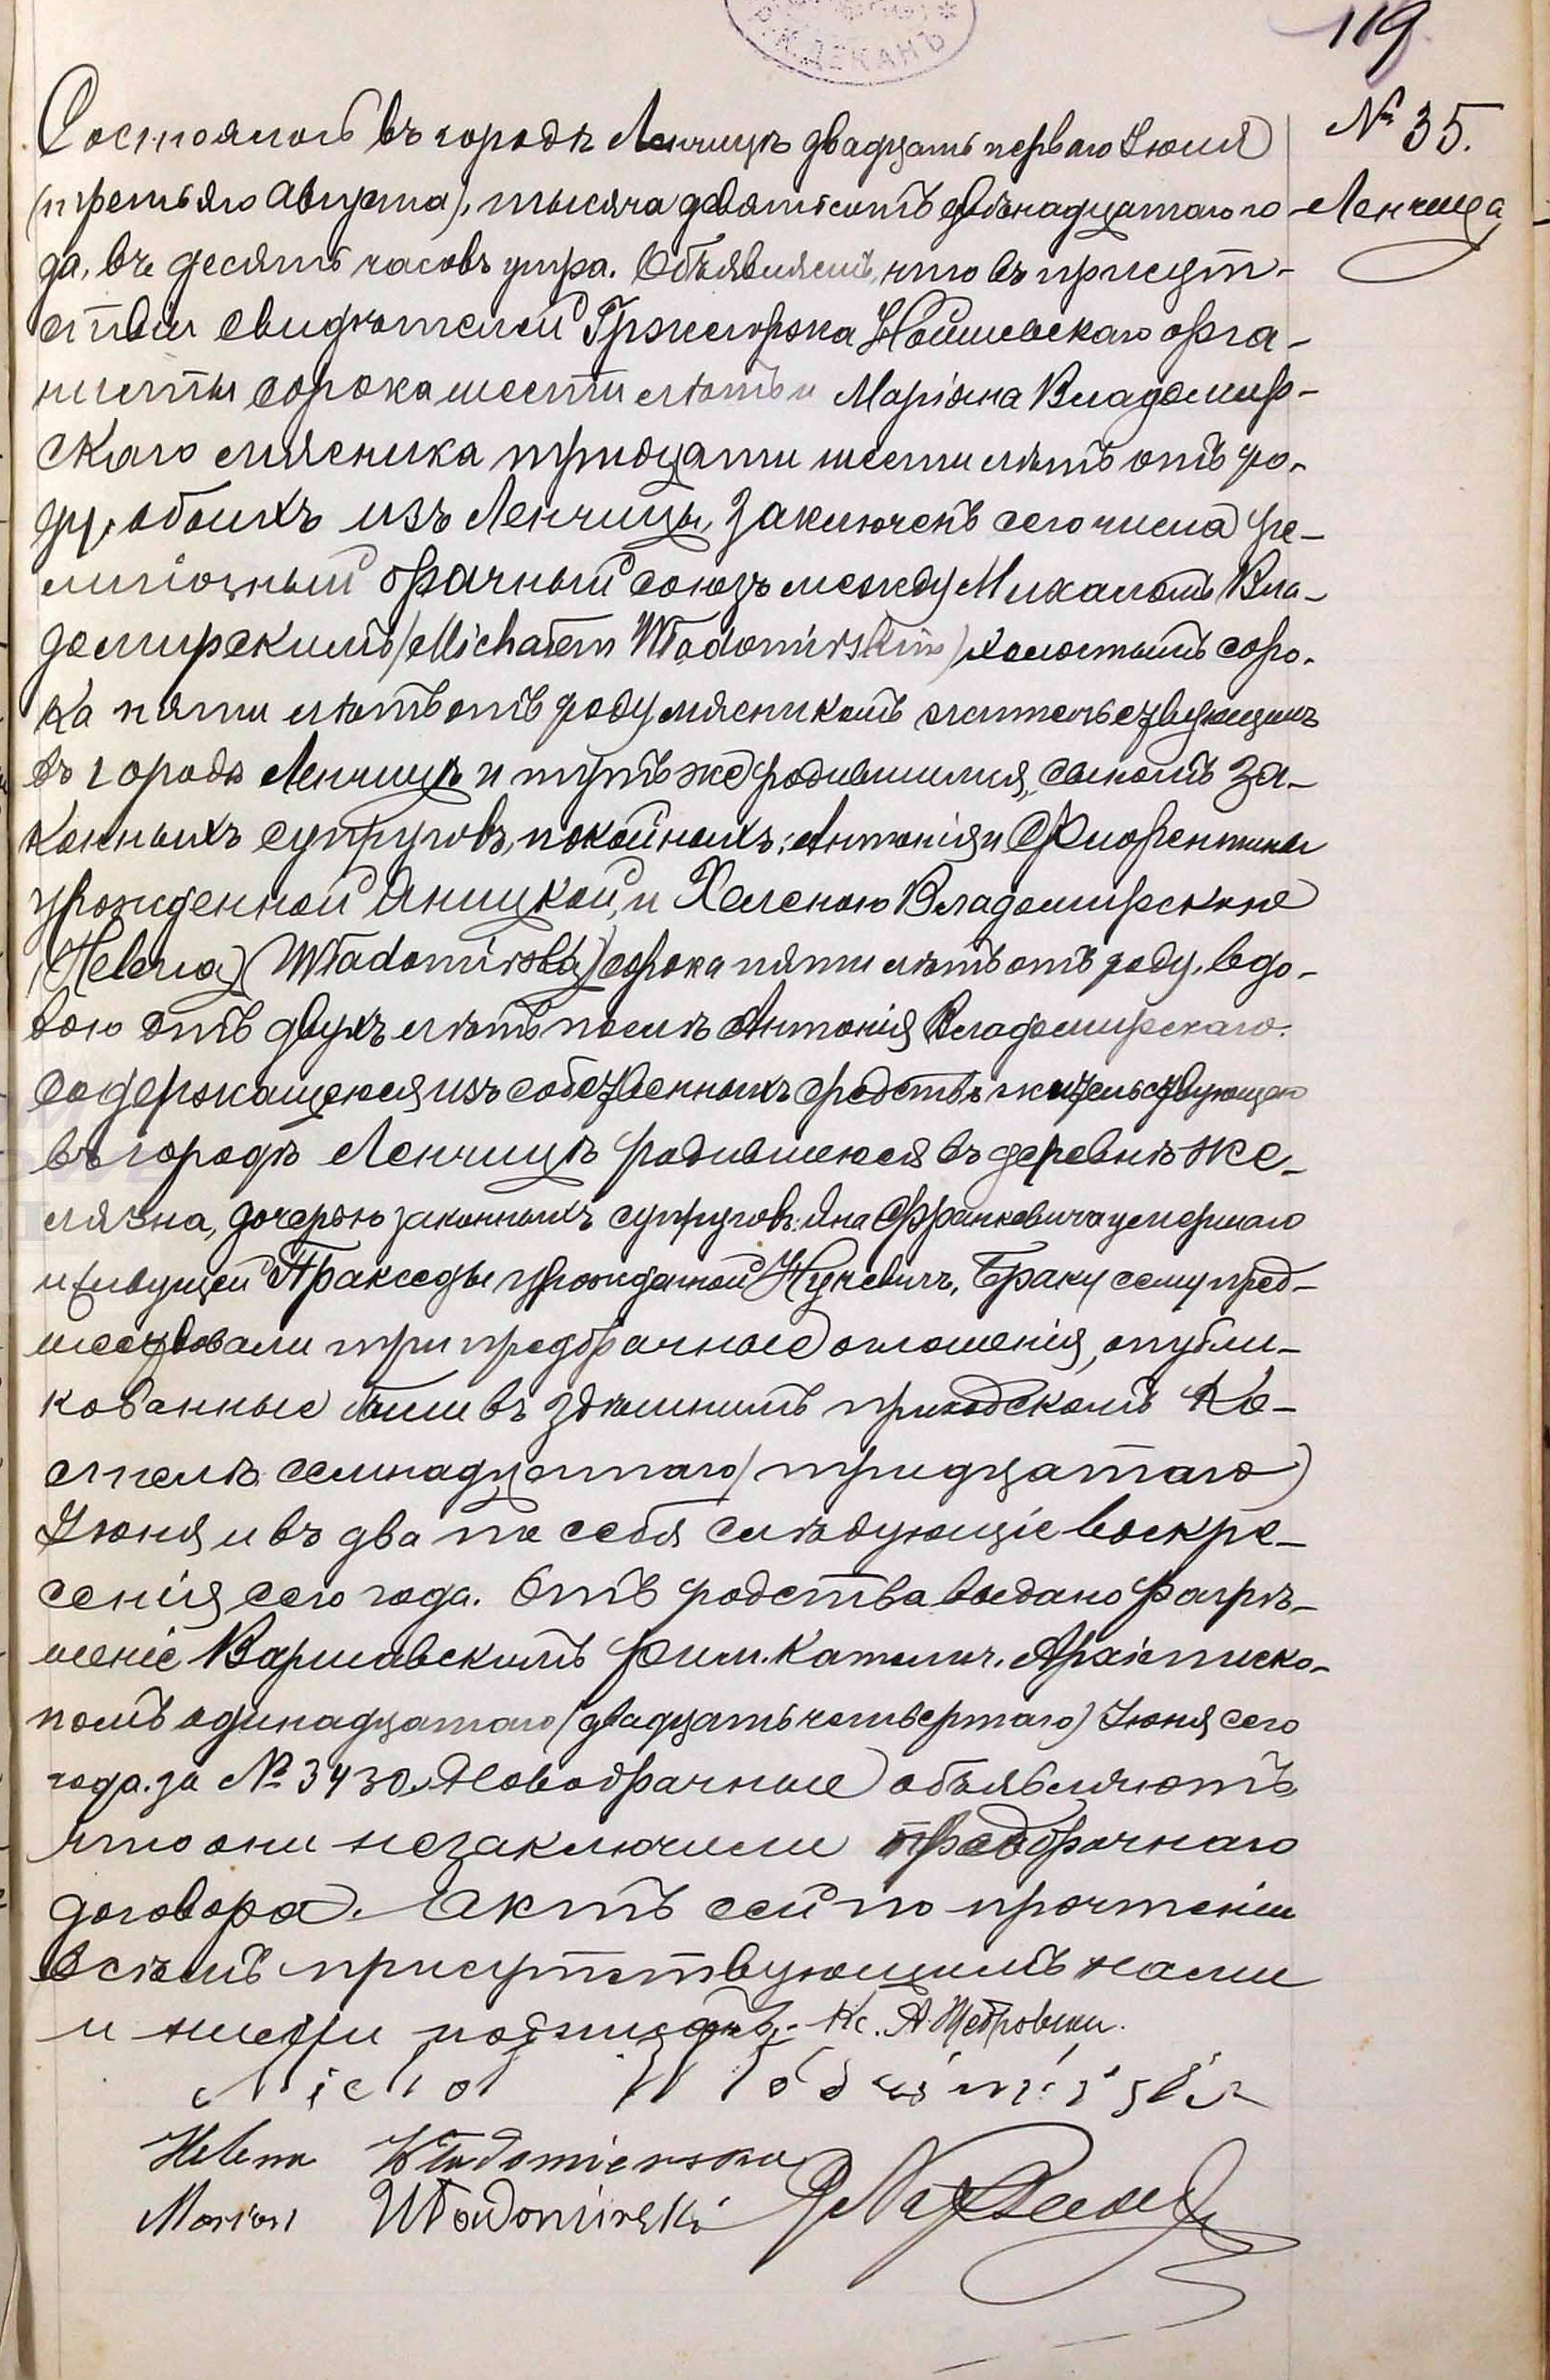 119
ДЕКАНЪ
№ 35.
Ленчица
Состоялось въ городѣ Ленчицѣ двадцать перваго Іюля
(третьяго Августа), тысяча девятьсотъ двѣнадцатаго го-
да, въ десять часовъ утра. Объявляемъ, что въ присут-
ствіи свидѣтелей Гржегоржа орга-
нисты сорока шести лѣтъ и Маріяна Владомир-
скаго мясника тридцати шести лѣтъ отъ ро-
ду, обоихъ изъ Ленчицы, заключенъ сего числа ре-
лигіозный брачный союзъ между Михаломъ Вла-
домирскимъ (Michałem Władomirskim) холостымъ соро-
ка пяти лѣтъ отъ роду мясникомъ жительствующимъ
въ городѣ Ленчицѣ и тутъ же родившимся, сыномъ за-
конныхъ супруговъ, покойныхъ: Антонія и Флорентины
урожденной Яницкой, и Хеленою Владомирскою
(Helena) (Władomirską) сорока пяти лѣтъ отъ роду, вдо-
вою отъ двухъ лѣтъ послѣ Антонія Владомирскаго.
содержащеюся изъ собственныхъ средствъ жительствующею
въ городѣ Ленчицѣ родившеюся въ деревнѣ Же-
лязна, дочерью законныхъ супруговъ: Яна Франкевича умершаго
и живущей Пракседы урожденной Браку сему пред-
шествовали три предбрачные оглашенія, опубли-
кованные были въ здѣшнимъ приходскомъ Ко-
стелѣ семнадцатаго (тридцатаго)
Іюня и въ два по себя слѣдующіе воскре-
сенія сего года. Отъ родства выдано разрѣ-
шеніе Варшавскимъ Рим. Католич. Архіеписко-
помъ одинадцатаго (двадцать четвертаго) Іюня сего
года за № 3430. Новобрачные объявляютъ
что они незаключили предбрачнаго
договора. Актъ сей по прочтеніи
всѣмъ присутствующимъ нами
и ними подписанъ. Кс. А.
Helena Władomierska
Marian Władomirski